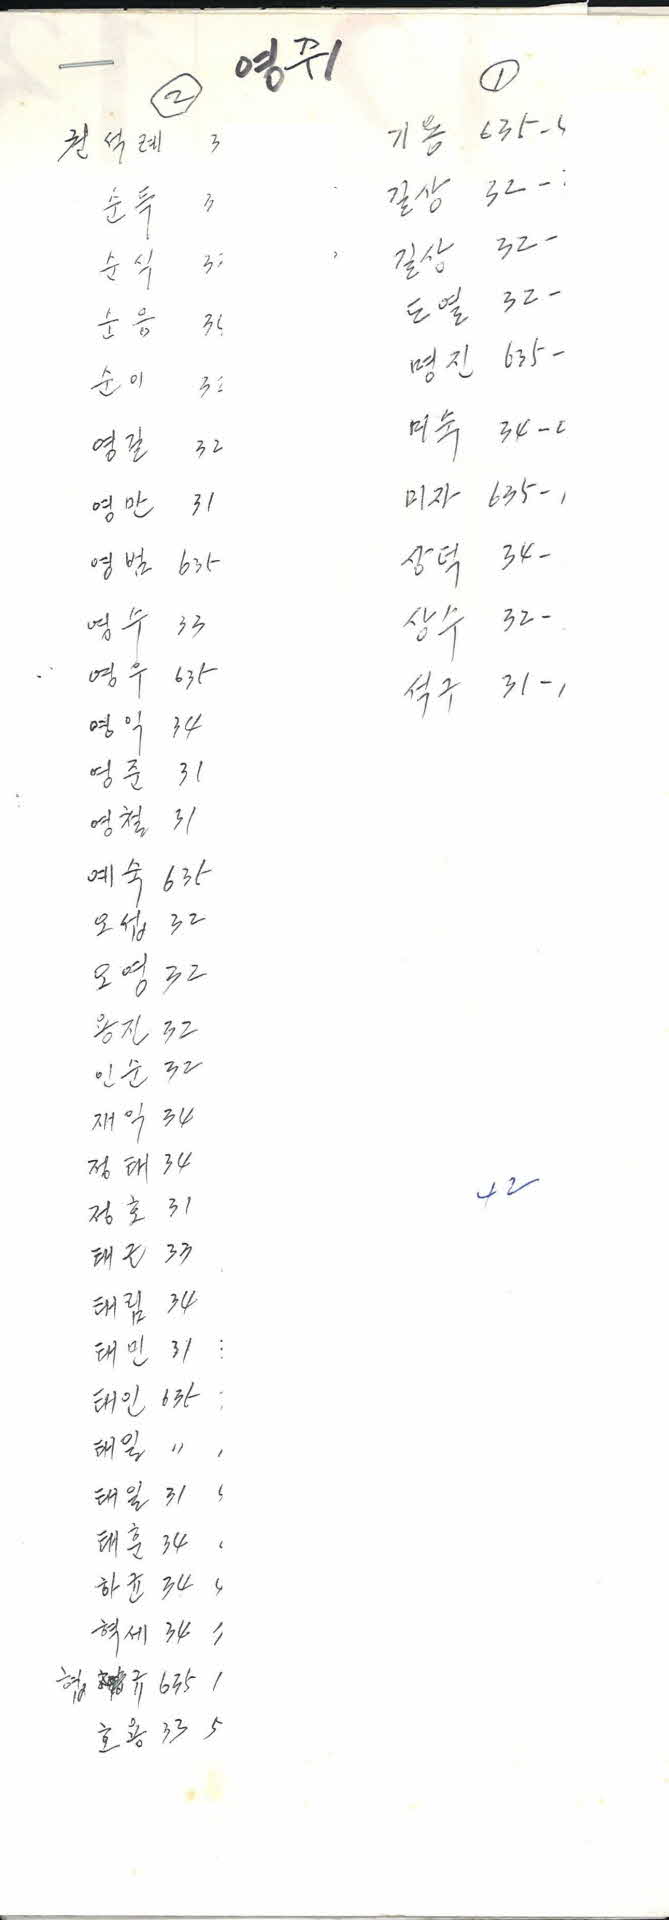 영쮜
①
기용 635-
길상 32-
길상 32-
도열 32-
명진 635-
미숙 34-
미자 635-
상덕 34-
상수 32-
석구 31-
42
②
권석례 3
순득 3
순식 3
순응 3
순이 3
영길 32
영만 31
영범 635
영수 33
영우 635
영익 34
영준 31
영철 31
예숙 635
오섭 32
오영 32
용진 32
인순 32
재익 34
정태 34
정호 31
태근 33
태림 34
태민 31
태인 635
태일 〃
태일 31
태훈 34
하균 34
혁세 34
협 규 635
호용 33 5